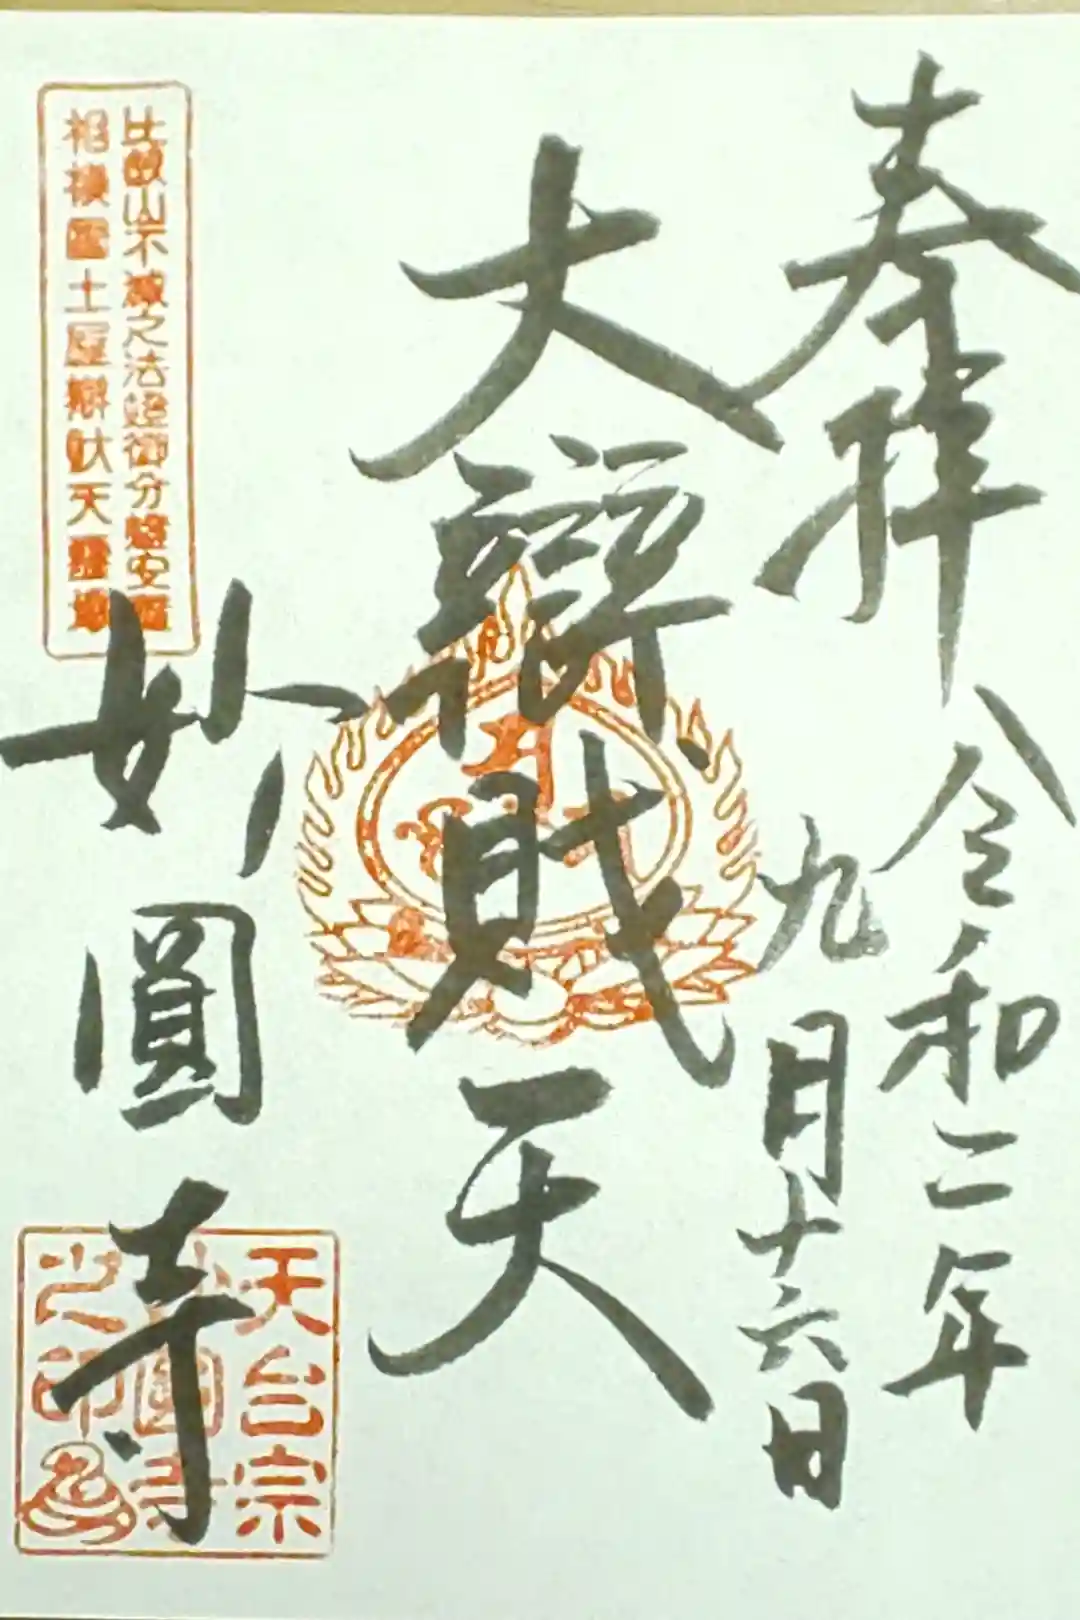 奉拝
令和二年
九月十六日
大辯財天
妙圓寺
比叡山不滅之法燈御分燈安置
相模國土屋辯財天霊場
天台宗
妙圓寺
之印